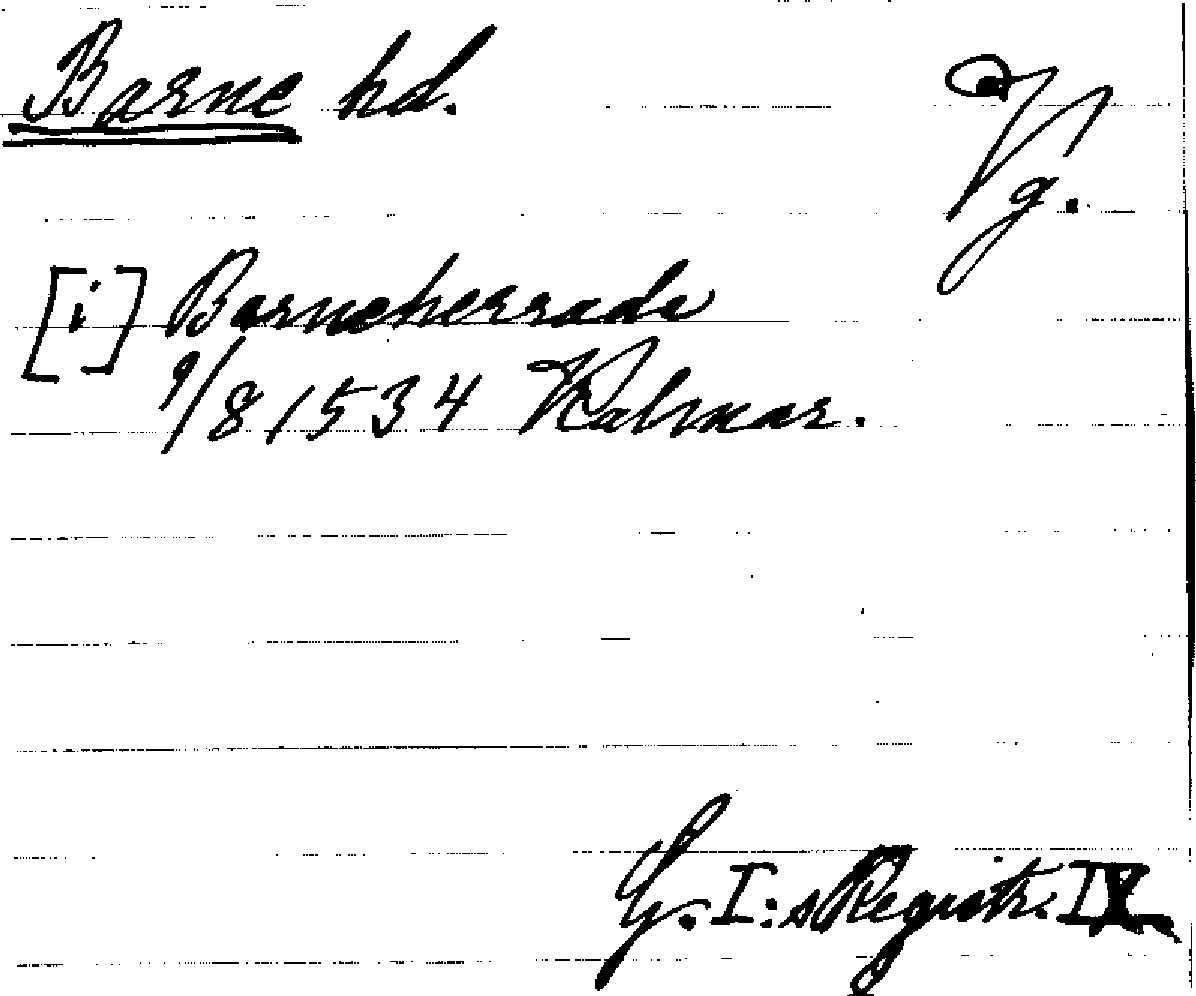 Barne hd.
Vg.
[i] Barneherrade
9/8 1534 Kalmar.
G. I:s Registr. IX